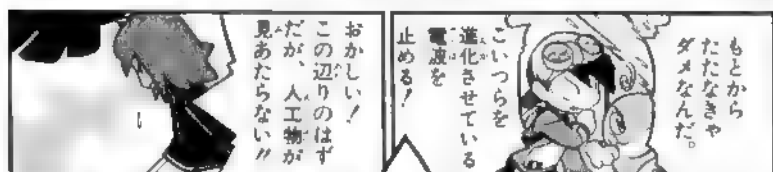 もとから
たたなきゃ
ダメなんだ。
こいつらを
進化させている
電波を
止める！
おかしい！
この辺りのはず
だが、人工物が
見あたらない!!